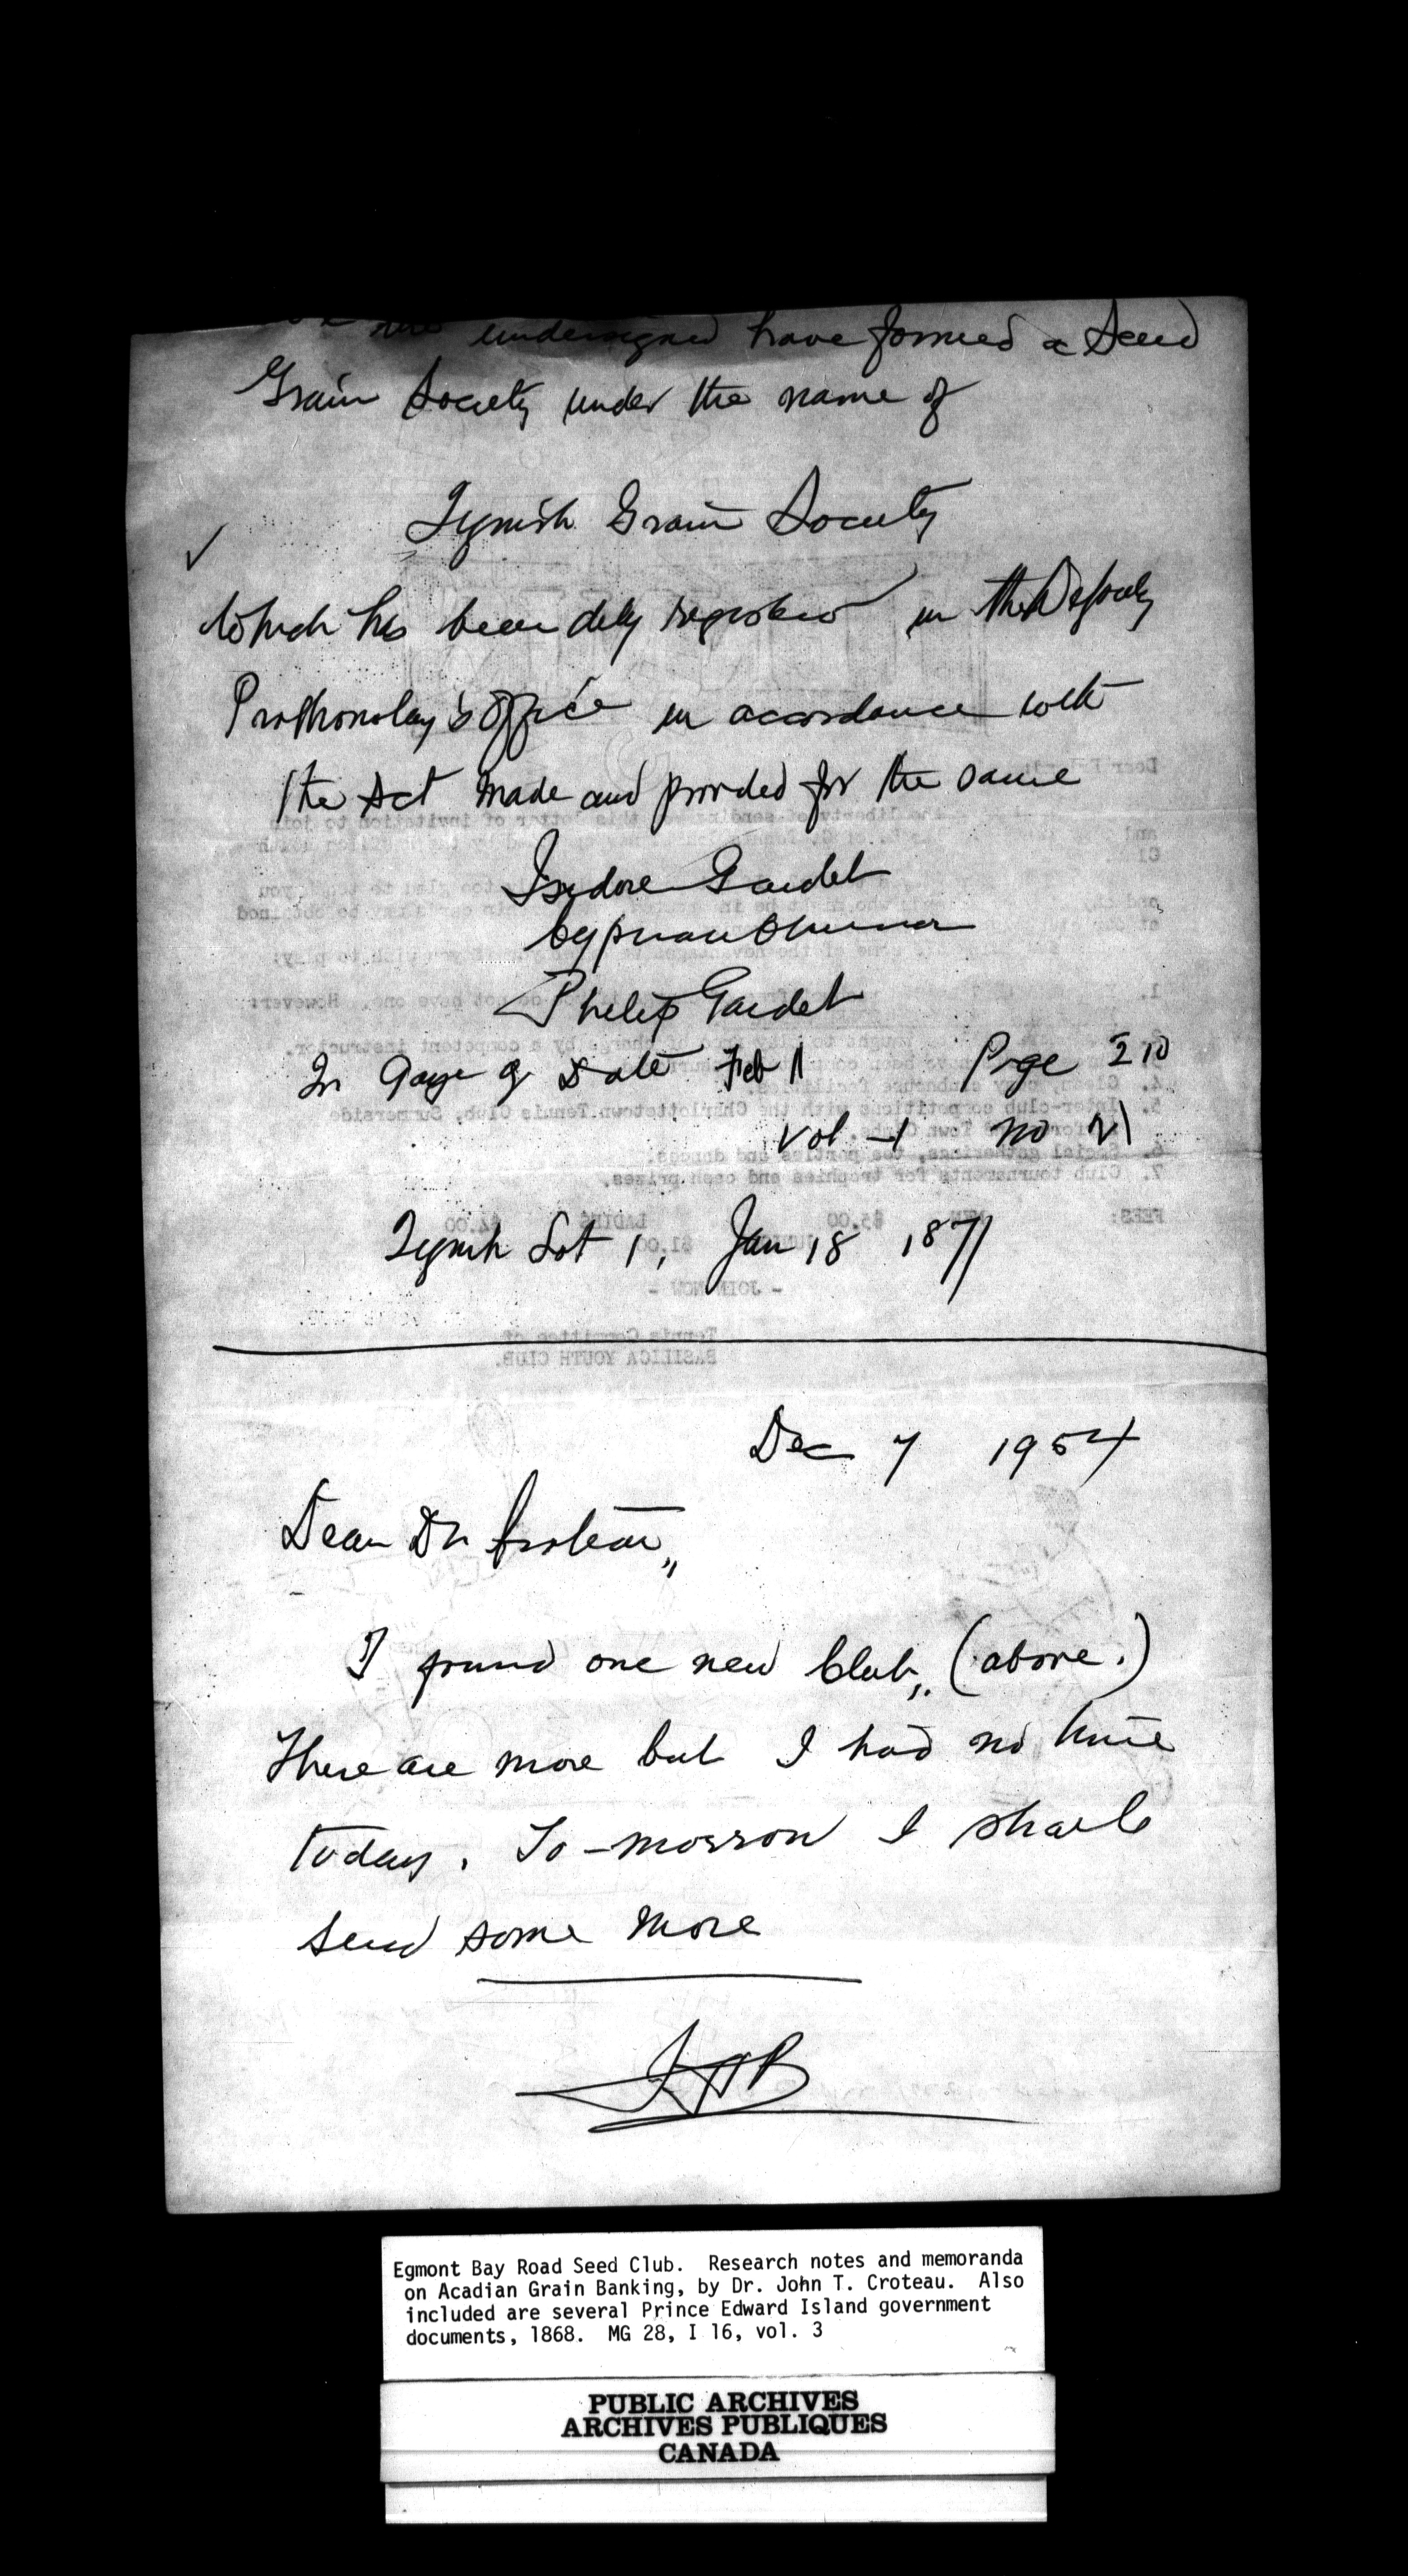 the undersigned have formed a Seed
Grain Society under the name of
Tignish Grain Society
✓
Which has been duly registered in the Deputy
Prothonotary's office in accordance with
the Act made and provided for the same
Isidore Gaudet
Cyprian
Philip Gaudet
In Gaz of Date Feb 11 Page 210
Vol -1 No 21
Tignish Lot 1, Jan 18 1871
Dec 7 1954
Dear Dr Croteau,,
I found one new Club,. (above.)
There are more but I had no time
today. To-morrow I shall
send some more
Egmont Bay Road Seed Club. Research notes and memoranda
on Acadian Grain Banking, by Dr. John T. Croteau. Also
included are several Prince Edward Island government
documents, 1868. MG 28, I 16, vol. 3
PUBLIC ARCHIVES
ARCHIVES PUBLIQUES
CANADA